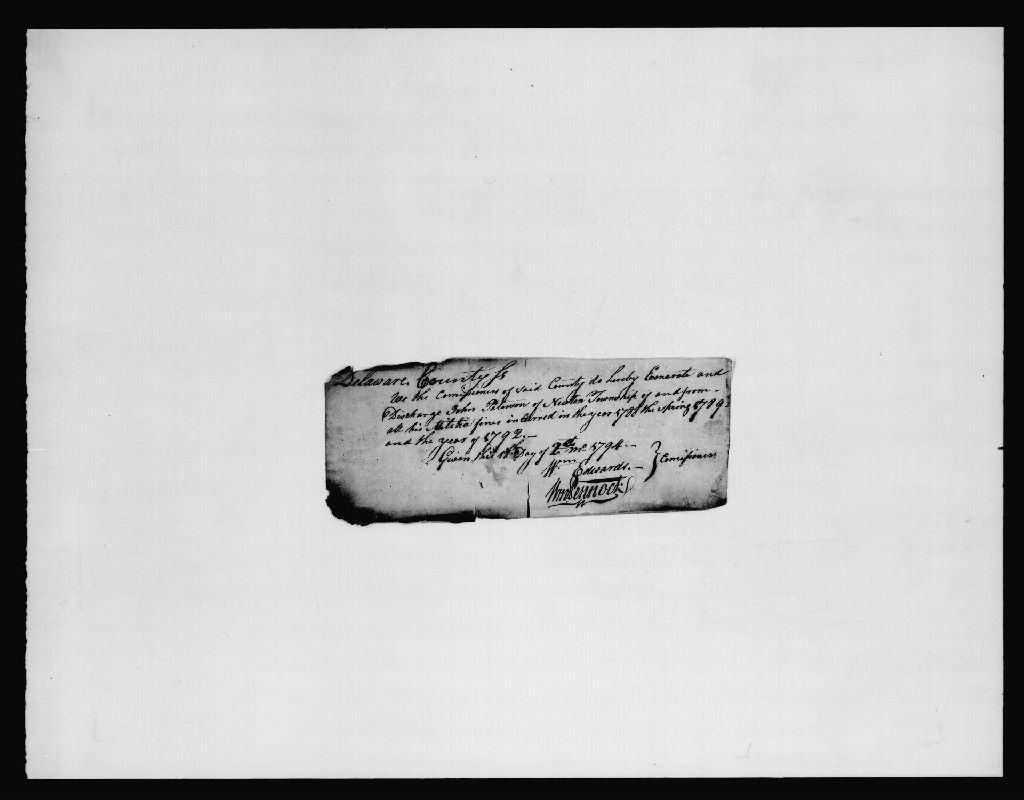 Delaware County ss
We the Comissioners of said County do hereby Exonerate and
Discharge John Peterson of Newton Township of and from
all his Militia fines incurred in the year 1788 the spring 1789
and the year of 1792.—
Given this Day of 2d mo. 1794.—
Wm Edwards.— } Comissioners
Wm Pennock